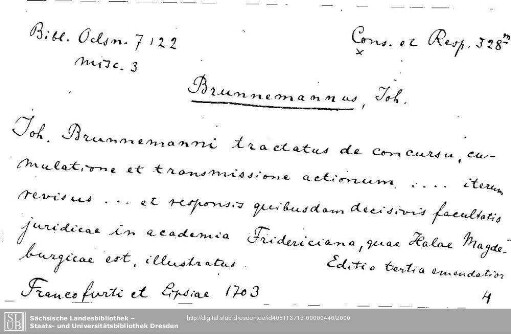 Bibl. Oelsn. 7122
Cons. et Resp. 328m
misc. 3
x
Brunnemannus, Joh.
Joh. Brunnemanni tractatus de concursu, cu-
mulatione et transmissione actionum .... iterum
revisus ... et responsis quibusdam decisivis facultatis
juridicae in academia Fridericiana, quae Halae Magde-
burgicae est, illustratus. Editio tertia emendatior
Francofurti et Lipsiae 1703
4
Sächsische Landesbibliothek –
Staats- und Universitätsbibliothek Dresden